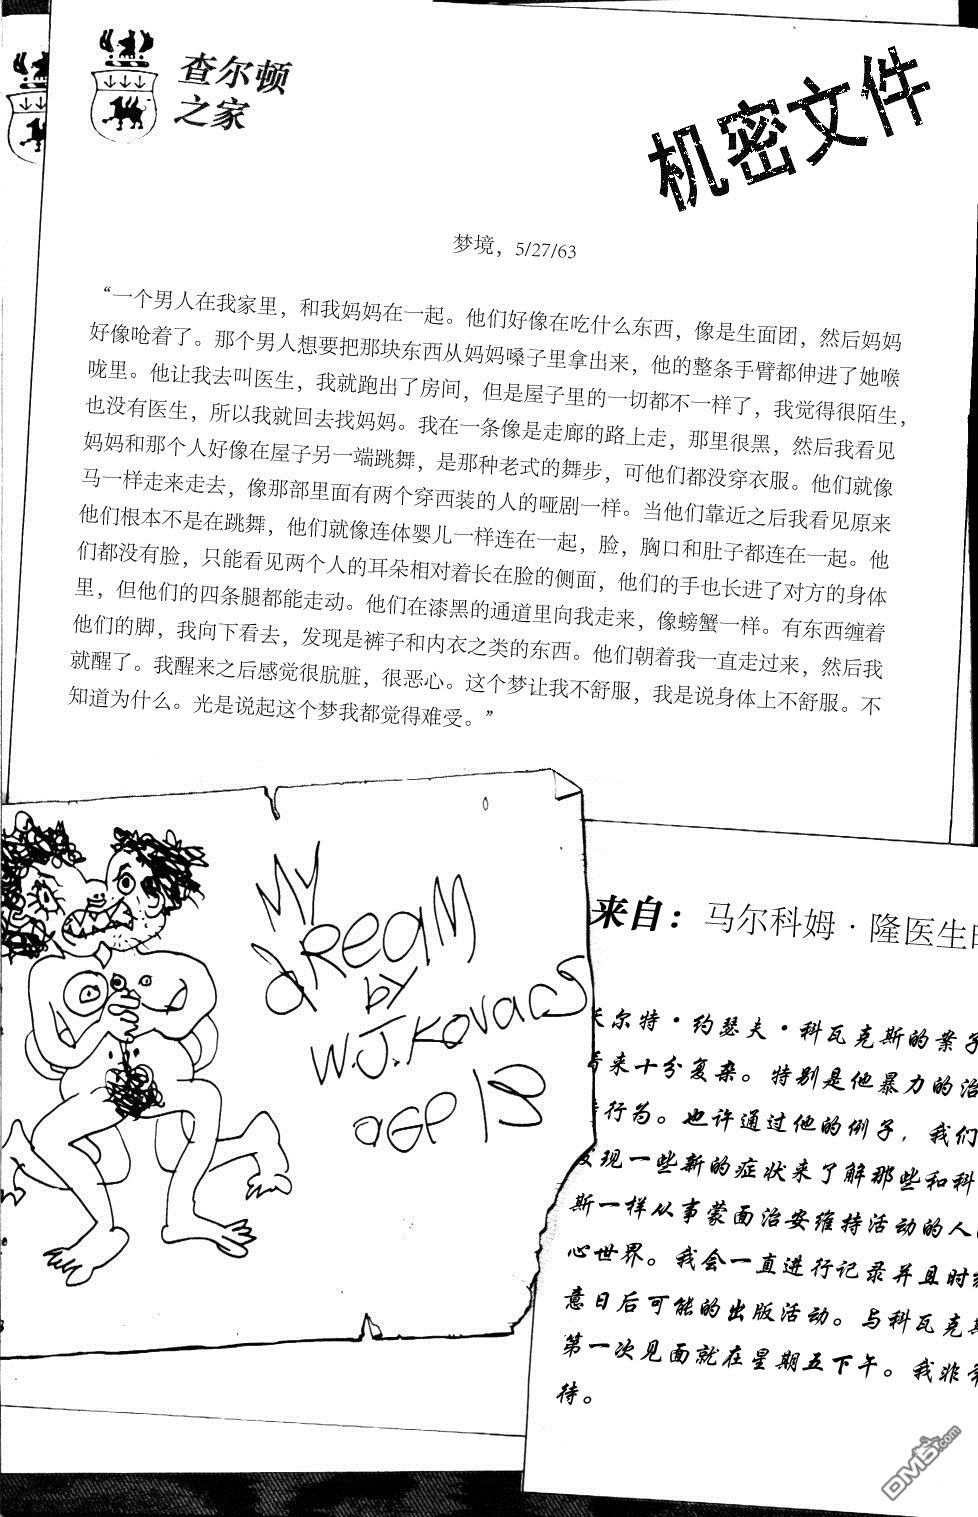 查尔顿
之家
机密文件
梦境，5/27/63
“一个男人在我家里，和我妈妈在一起。他们好像在吃什么东西，像是生面团，然后妈妈
好像呛着了。那个男人想要把那块东西从妈妈嗓子里拿出来，他的整条手臂都伸进了她喉
咙里。他让我去叫医生，我就跑出了房间，但是屋子里的一切都不一样了，我觉得很陌生，
也没有医生，所以我就回去找妈妈。我在一条像是走廊的路上走，那里很黑，然后我看见
妈妈和那个人好像在屋子另一端跳舞，是那种老式的舞步，可他们都没穿衣服。他们就像
马一样走来走去，像那部里面有两个穿西装的人的哑剧一样。当他们靠近之后我看见原来
他们根本不是在跳舞，他们就像连体婴儿一样连在一起，脸，胸口和肚子都连在一起。他
们都没有脸，只能看见两个人的耳朵相对着长在脸的侧面，他们的手也长进了对方的身体
里，但他们的四条腿都能走动。他们在漆黑的通道里向我走来，像螃蟹一样。有东西缠着
他们的脚，我向下看去，发现是裤子和内衣之类的东西。他们朝着我一直走过来，然后我
就醒了。我醒来之后感觉很肮脏，很恶心。这个梦让我不舒服，我是说身体上不舒服。不
知道为什么。光是说起这个梦我都觉得难受。”
MY
dReaM
by
W.J.Kovacs
age 13
来自：马尔科姆·隆医生
尔特·约瑟夫·科瓦克斯的案子
来十分复杂。特别是他暴力的治
行为。也许通过他的例子，我们
发现一些新的症状来了解那些和科
斯一样从事蒙面治安维持活动的人
心世界。我会一直进行记录并且时
意日后可能的出版活动。与科瓦克
第一次见面就在星期五下午。我非
待。
DM5.com